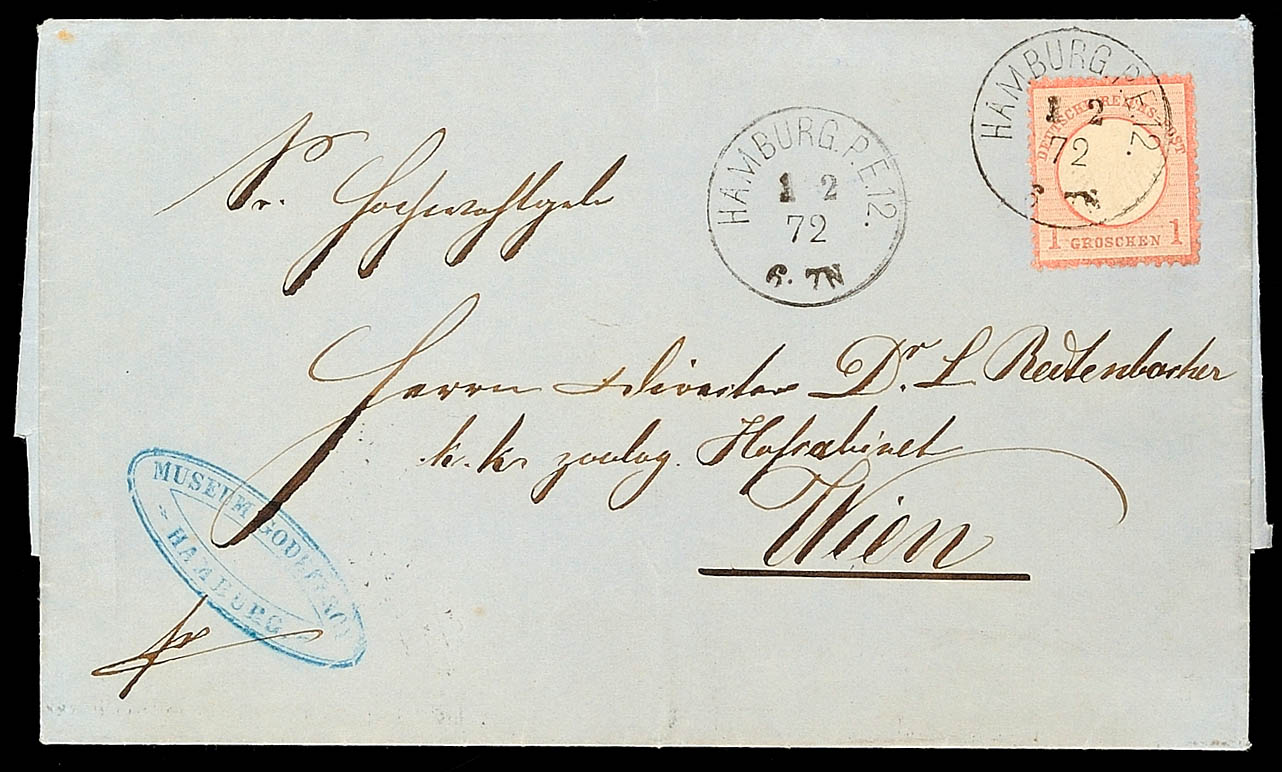 HAMBURG.P.E.12.
1 2
72
6-7N
HAMBURG.P.E.12.
1 2
72
6-7N
DEUTSCHE REICHS-POST
1 GROSCHEN 1
Sr. Hochwohlgeb
Herrn Director Dr. L Redtenbacher
k. k. zoolog. Hofcabinet
Wien
MUSEUM GODEFFROY
HAMBURG
fr